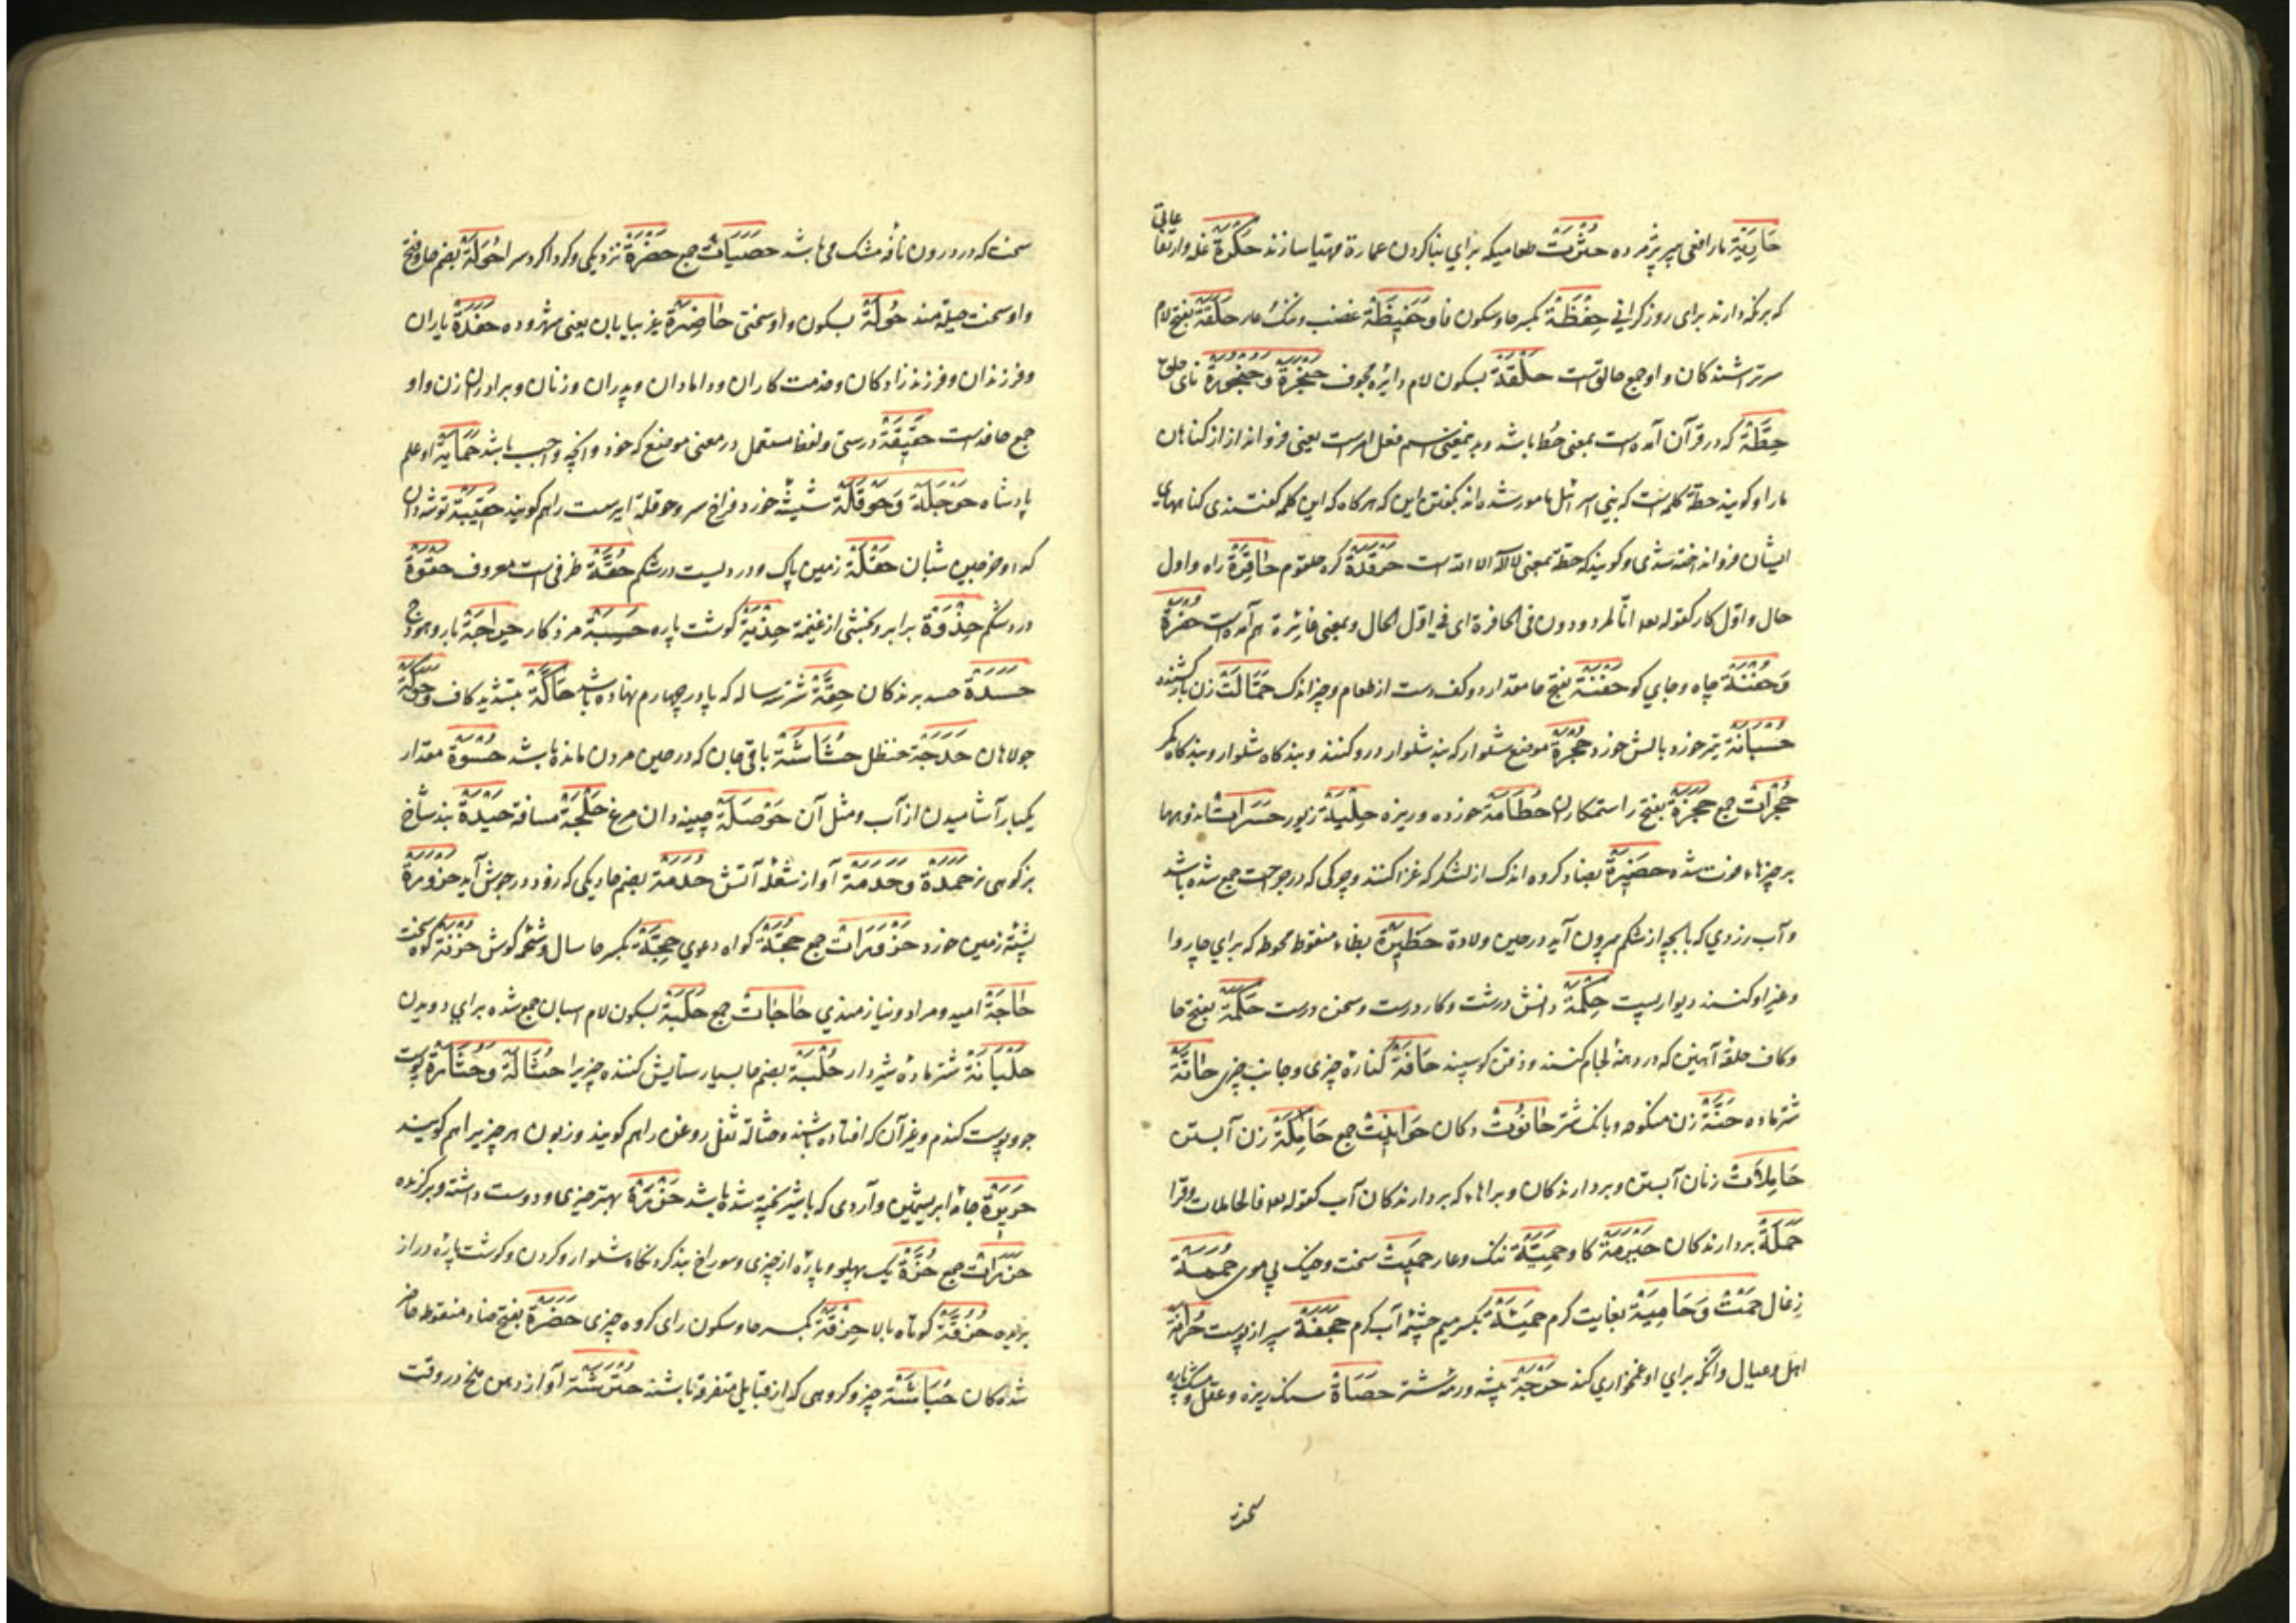 حَارِیَة مار افعی پیر پژمرده حُثْرُمَت طعامیکه برای بنا کردن عمارة مهیا سازند حُکْرَة غله وارتفاعاتی
که برنگه دارند برای روز گرانی حِفْظَة بکسر حا وسکون فا وحَفِیظَة غضب وننگ حَلَقَة بفتح لام
سرتراشندکان واو جمع حالق است حَلْقَة بسکون لام دائره مجوف حَنْجَرَة وحُنْجُورَة نای حلق
حِطَّة که در قرآن آمده است بمعنی حُط باشد یعنی فرو انداز از کناهان
ما را وکویند حطة کلمه است که بنی اسرائیل مامور شده اند بکفتن این که هرکاه که این کلمه کفتندی کناهای
ایشان فرو انداخته شدی وکویند که حطة بمعنی لااله الا الله است حَرْقَدَة کره حلقوم حَافِرَة راه واول
حال واول کار کقوله انا لمردودون فی الحافرة ای فی اول الحال وبمعنی هم آمده است حُفْرَة
وَحُفْنَة چاه وجای کو حَفْنَة بفتح حا مقدار دو کف دست از طعام وچیز اندک حَمَّالَت زن بارکشنده
حُسْبَانَة تیر خورد وبالش خورد حُجْزَة موضع شلوار که بند شلوار درو کنند وبندکاه شلوار وبندکاه کمر
حُجْزَات جمع حَجَزَة بفتح را ستمکاران حُطَامَة خورده وریزه حِلْیَة زیور حَسَرَات اندوهها
بر چیزهاء فوت شده حَضِیرَة بضاد کروه اندک از لشکر که غزا کنند وچرکی که در جراحت جمع شده باشد
وآب زردی که با بچه از شکم بیرون آید در حین ولادة حَظِیرَة بظاء منقوط محوطه که برای چاروا
وغیر او کنند دیوار پست حِکْمَة دانش درست وکار درست وسخن درست حَکَمَة بفتح حا
وکاف حلقه آهنین که در دهنه لجام کنند وذقن کوسپند حَافَة کناره چیزی وجانب چیزی حَانَّة
شتر ماده حَنَّة زن منکوحه وبانک شتر حَانُوت دکان حَوَانِیت جمع حَامِلَة زن آبستن
حَامِلَات زنان آبستن وبردارندکان وبراهاء که بردارندکان آب کقوله فالحاملات وقرا
حَمَلَة بردارندکان حَیْرُمَة کاو حَمِیَّة ننک وعار حَمِیت سخت وخیک بی موی حُمَمَة
زغال حَمْت وَحَامِیَة بغایت کرم حَمِئَة بکسر میم چشمه آب کرم حَجَفَة سپر از پوست حُزَانَة
اهل وعیال وآنکه برای او غمخواری کند حَوْجَة حَصَاة سنک ریزه وعقل ومشک پاره
سخت
سخت که در درون نافه مشک می باشد حَصَیَات جمع حَضْرَة نزدیکی وکرداکرد سرا حُوَلَة بضم حا وفتح
واو سخت حیلهمند حُولَة بسکون واو سختی حَاضِرَة غیر بیابان یعنی شهر وده حَفَدَة یاران
وفرزندان وفرزندزادکان وخدمتکاران ودامادان وپدران وزنان وبرادران زن واو
جمع حافد است حَقِیقَة درستی ولفظ مستعمل در معنی موضع له خود وآنچه واجب باشد حمایة او علم
پادشاه حَوْجَلَة وَحَوْقَلَة شیشه خورد فراخ سر وحوقلة ایرست را هم کویند حَقِیبَة توشه دان
حَقْلَة زمین پاک ودردیست در شکم حُقَّة ظرفی است معروف حَقْوَة
درد شکم حِذْوَة برابر وبخشی از غنیمة حِذْیَة کوشت پاره حَسِیبَة مزد کار حِدَاجَة بار وهودج
حَسَدَة حسد برندکان حِقَّة شتر سه ساله که پا در چهارم نهاده باشد حَاکَّة بتشدید کاف وحَوَکَة
جولاهان حَدَجَة حنظل حُشَاشَة باقی جان که در حین مردن مانده باشد حُسْوَة مقدار
یکبار آشامیدن از آب ومثل آن حَوْصَلَة چینه دان مرغ حَلْجَة مسافة حَیْدَة بند شاخ
بز کوهی نر حَمَدَة وحَدَمَة آواز شعلة آتش حُدَمَة بضم حا دیکی که زود در جوش آید حَزْوَرَة
پشته زمین خورد حَزْوَرَات جمع حُجَّة کواه دعوی حِجَّة بکسر حا سال وشحمه کوش حُزْنَة کوه سخت
حَاجَة امید ومراد ونیازمندی حَاجَات جمع حَلْبَة بسکون لام اسبان جمع شده برای دویدن
حَلْبَانَة شتر ماده شیردار حُلْبَة بضم حا بسیار ستایش کننده چیزیرا حُثَالَة وَحُشَارَة پوست
جو وپوست کندم وغیر آن که افتاده باشند وحثالة ثفل روغن را هم کویند وزبون هر چیزیرا هم کویند
حَرِیرَة جامه ابریشمین وآردی که با شیر پخته شده باشد حَزْرَة بهتر چیزی ودوست داشته وبرکزیده
حَزَرَات جمع حُزَّة یک پهلو وپاره از چیزی وسوراخ بند کردنکاه شلوار وکردن وکوشت پاره دراز
بریده حُزُقَّة کوتاه بالا حِزْقَة بکسر حا وسکون زای کروه چیزی حَضَرَة بفتح ضاد منقوط حاضر
شدکان حُبَاشَة چیز وکروهی که از قبایل متفرقه باشند حَتْرَشَة آواز دهن ملخ در وقت